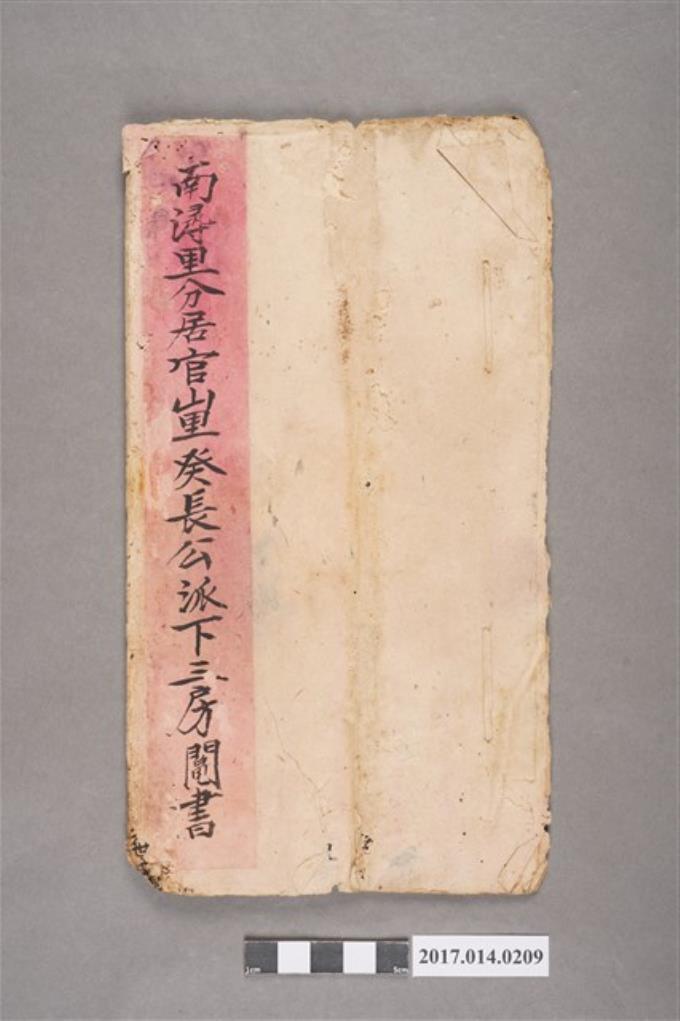 南潯里分居官山里癸長公派下三房鬮書
1cm
5cm
2017.014.0209